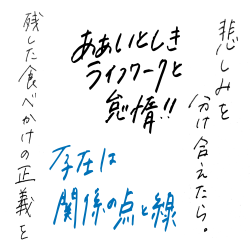 悲しみを
分け合えたら。
ああいとしき
ライフワークと
怠惰!!
存在は
関係の点と線
残した食べかけの正義を